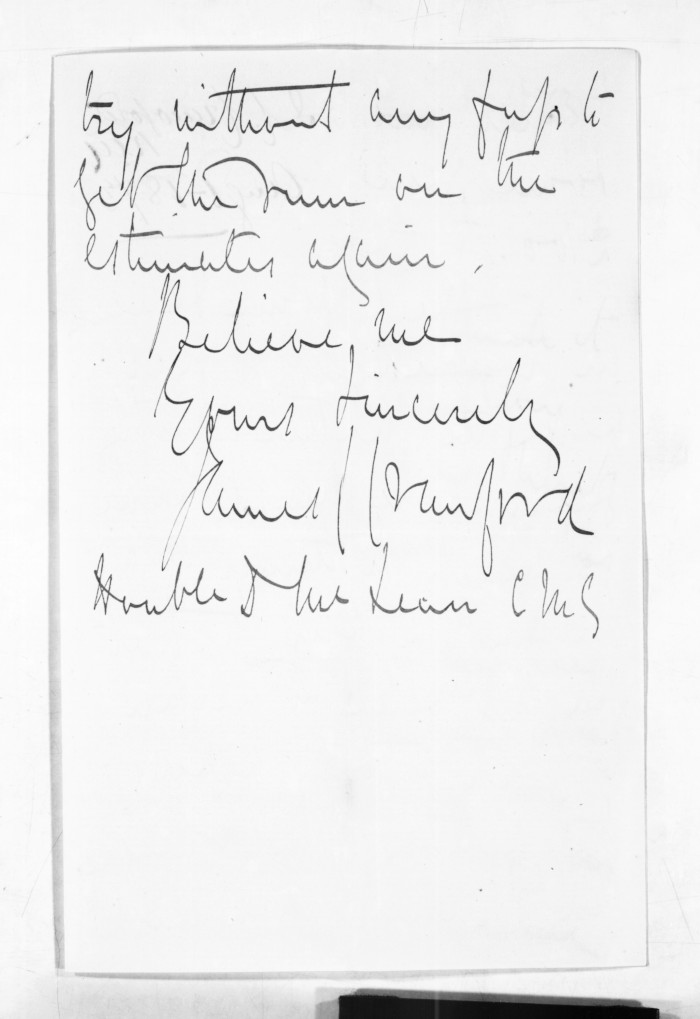 try without any fuss to
get the sum on the
estimates again.
Believe me
Yours Sincerely
James Crawford
Honble D McLean C M G